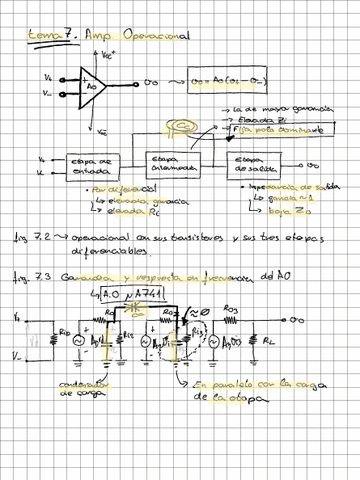 tema 7. Amp. Operacional
Vcc+
V+
V-
+
-
A0
Vcc-
υo
υo = A0(υ+ - υ-)
→ la de mayor ganancia
→ Elevada Zi
→ Fija polo dominante
Cc
V+
V-
etapa de entrada
Etapa intermedia
Etapa de salida
υo
• Par diferencial
↳ elevada ganancia
↳ elevada Ri
• Impedancia de salida
↳ ganc ≈ 1
↳ baja Zo
fig 7.2 → operacional con sus transistores y sus tres etapas
diferenciables.
fig. 7.3 Ganancia y respuesta en frecuencia del AO
↳ A.O μA741
V+
V-
Ri2
Ri3
Ro3
RL
υo
≈ Ø
condensador
de carga
En paralelo con la carga
de la etapa